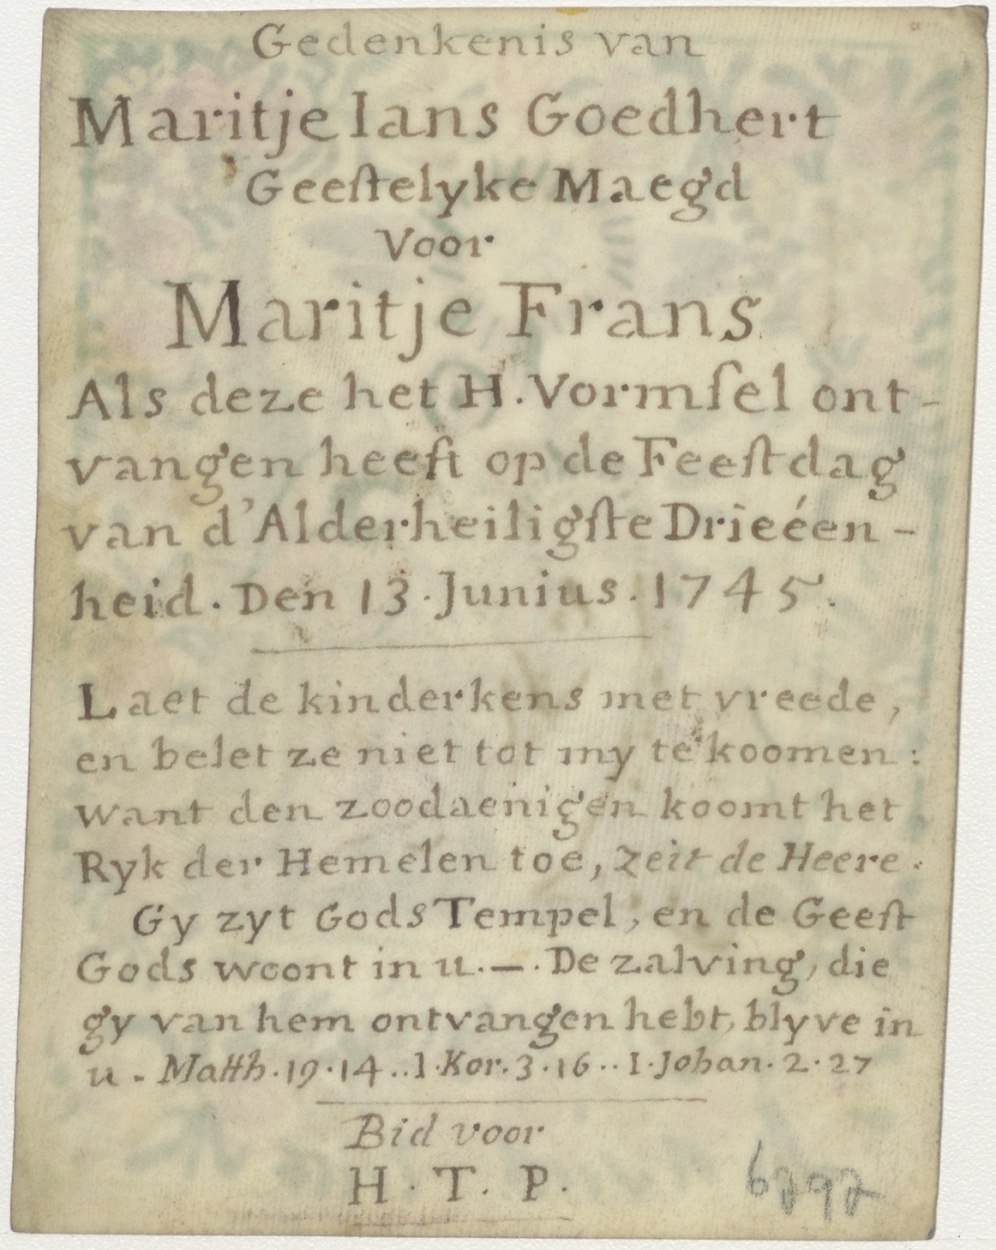 Gedenkenis van
Maritje Ians Goedhert
Geeſtelyke Maegd
Voor
Maritje Frans
Als deze het H. Vormſel ont-
vangen heeft op de Feeſtdag
van d'Alderheiligſte Drieéen-
heid. Den 13. Junius. 1745.
Laet de kinderkens met vreede,
en belet ze niet tot my te koomen:
want den zoodaenigen koomt het
Ryk der Hemelen toe, zeit de Heere.
Gy zyt Gods Tempel, en de Geeſt
Gods woont in u. —. De zalving, die
gy van hem ontvangen hebt, blyve in
u. Matth. 19. 14.. 1. Kor. 3. 16.. 1. Johan. 2. 27
Bid voor
H. T. P.